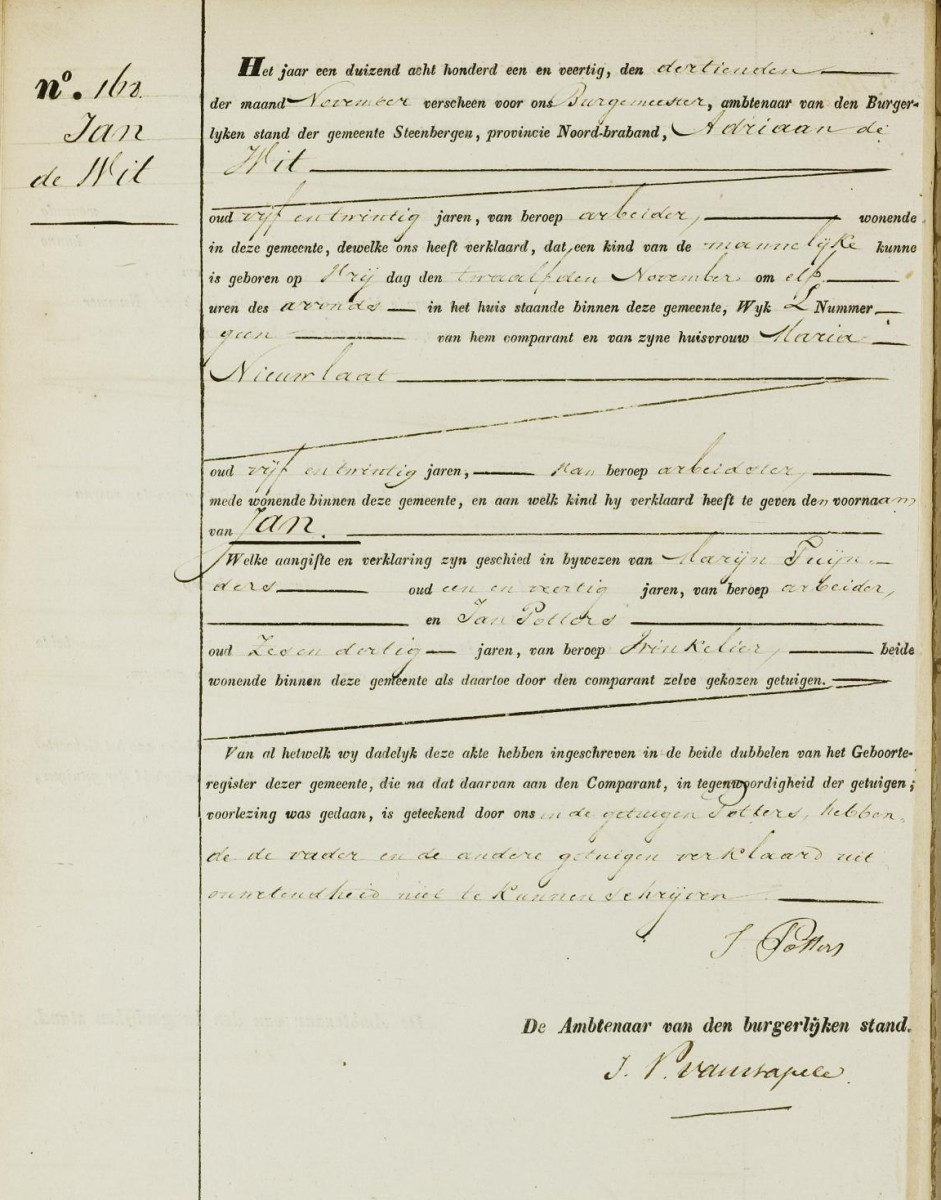 nº. 168.
Jan
de Wit
Het jaar een duizend acht honderd een en veertig, den dertienden
der maand November verscheen voor ons Burgemeester, ambtenaar van den Burger-
lyken stand der gemeente Steenbergen, provincie Noord-braband, Adriaan de
Wit
oud vijf en twintig jaren, van beroep arbeider, wonende
in deze gemeente, dewelke ons heeft verklaard, dat een kind van de mannelijke kunne
is geboren op Vrij dag den twaalfden November om elf
uren des avonds in het huis staande binnen deze gemeente, Wyk L Nummer
geen van hem comparant en van zyne huisvrouw Maria
Nieuwlaat
oud vijf en twintig jaren, van beroep arbeidster,
mede wonende binnen deze gemeente, en aan welk kind hy verklaard heeft te geven den voornaam
van Jan.
Welke aangifte en verklaring zyn geschied in bywezen van Marijn Tuijn-
ders oud een en veertig jaren, van beroep arbeider,
en Jan Potters
oud Zes en dertig jaren, van beroep Winkelier, beide
wonende binnen deze gemeente als daartoe door den comparant zelve gekozen getuigen.
Van al hetwelk wy dadelyk deze akte hebben ingeschreven in de beide dubbelen van het Geboorte-
register dezer gemeente, die na dat daarvan aan den Comparant, in tegenwoordigheid der getuigen;
voorlezing was gedaan, is geteekend door ons en de getuigen Potters, hebben-
de de vader en de andere getuigen verklaard uit
onwetendheid niet te kunnen schrijven
J Potters
De Ambtenaar van den burgerlijken stand.
J. V.